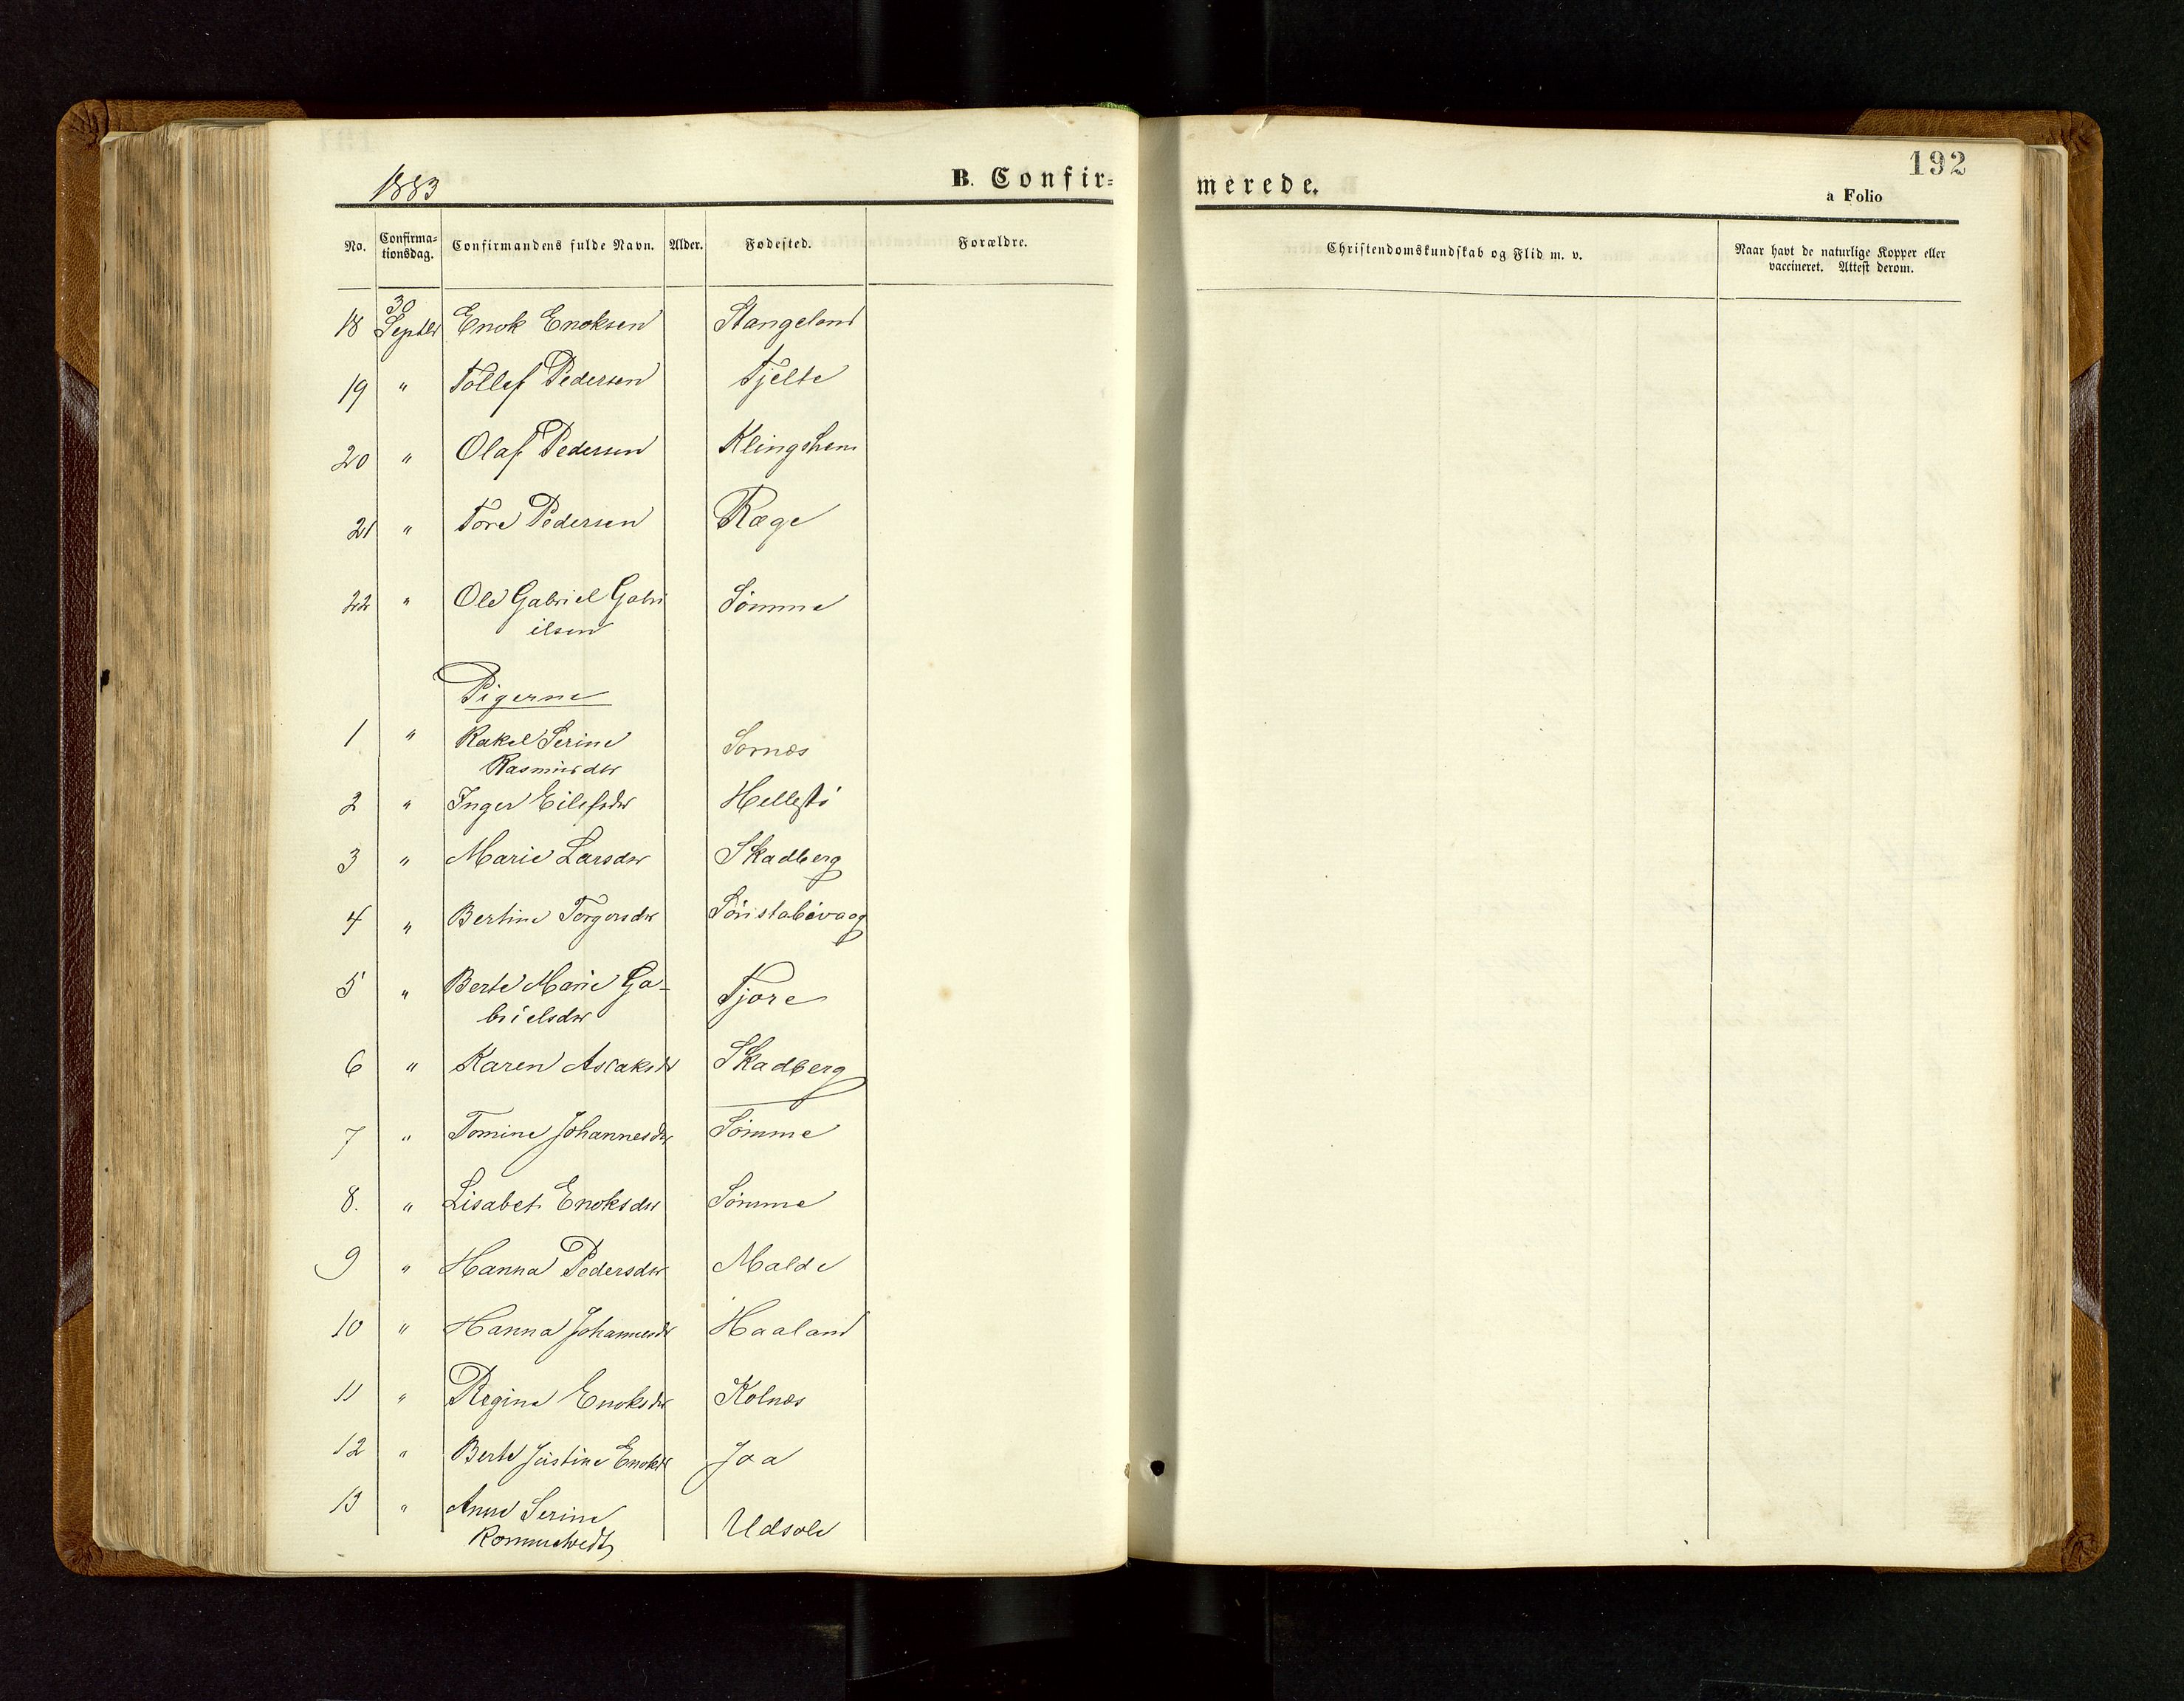 192
1883
B. Confir=
merede.
a Folio
No. Confirma=tionsdag. Confirmandens fulde Navn. Alder. Fødested. Forældre. Christendomskundskab og Flid m. v. Naar havt de naturlige Kopper eller vaccineret. Attest derom.
18 30 Septbr Enok Enoksen Stangeland
19 " Tollef Pedersen Tjelte
20 " Olaf Pedersen Klingshem
21 " Tore Pedersen Ræge
22 " Ole Gabriel Gabri
ilsen Sømme
Pigerne
1 " Rakel Serine
Rasmusdtr Sornæs
2 " Inger Eilefsdtr Hellestø
3 " Marie Larsdtr Skadberg
4 " Bertine Torgersdtr
5 " Berte Marie Ga-
brielsdtr Tjore
6 " Karen Aslaksdtr Skadberg
7 " Tomine Johannesdtr Sømme
8. " Lisabet Enoksdtr Sømme
9 " Hanna Pedersdtr Malde
10 " Hanna Johannesdtr Haaland
11 " Regine Enoksdtr Kolnæs
12 " Berte Justine Enoksdtr Joa
13 " Anne Serine
Rommetvedt Udsole